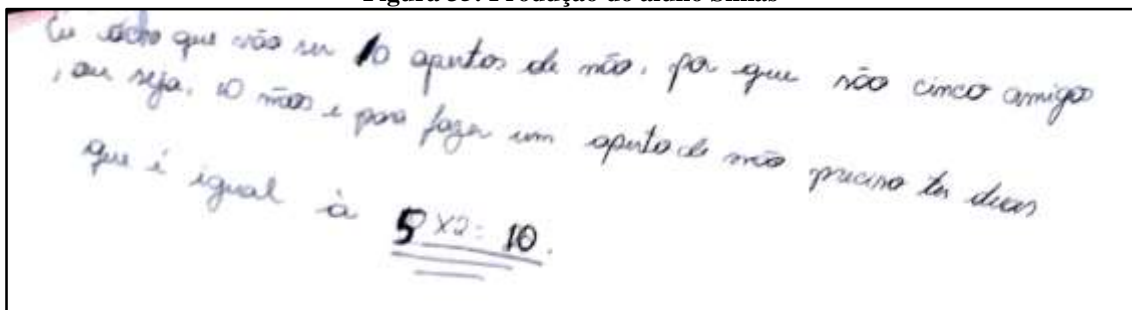 Eu acho que vão ser 10 apertos de mão, por que são cinco amigos
, ou seja, 10 mãos e para fazer um aperto de mão preciso ter duas
que é igual à 5 x 2 = 10.